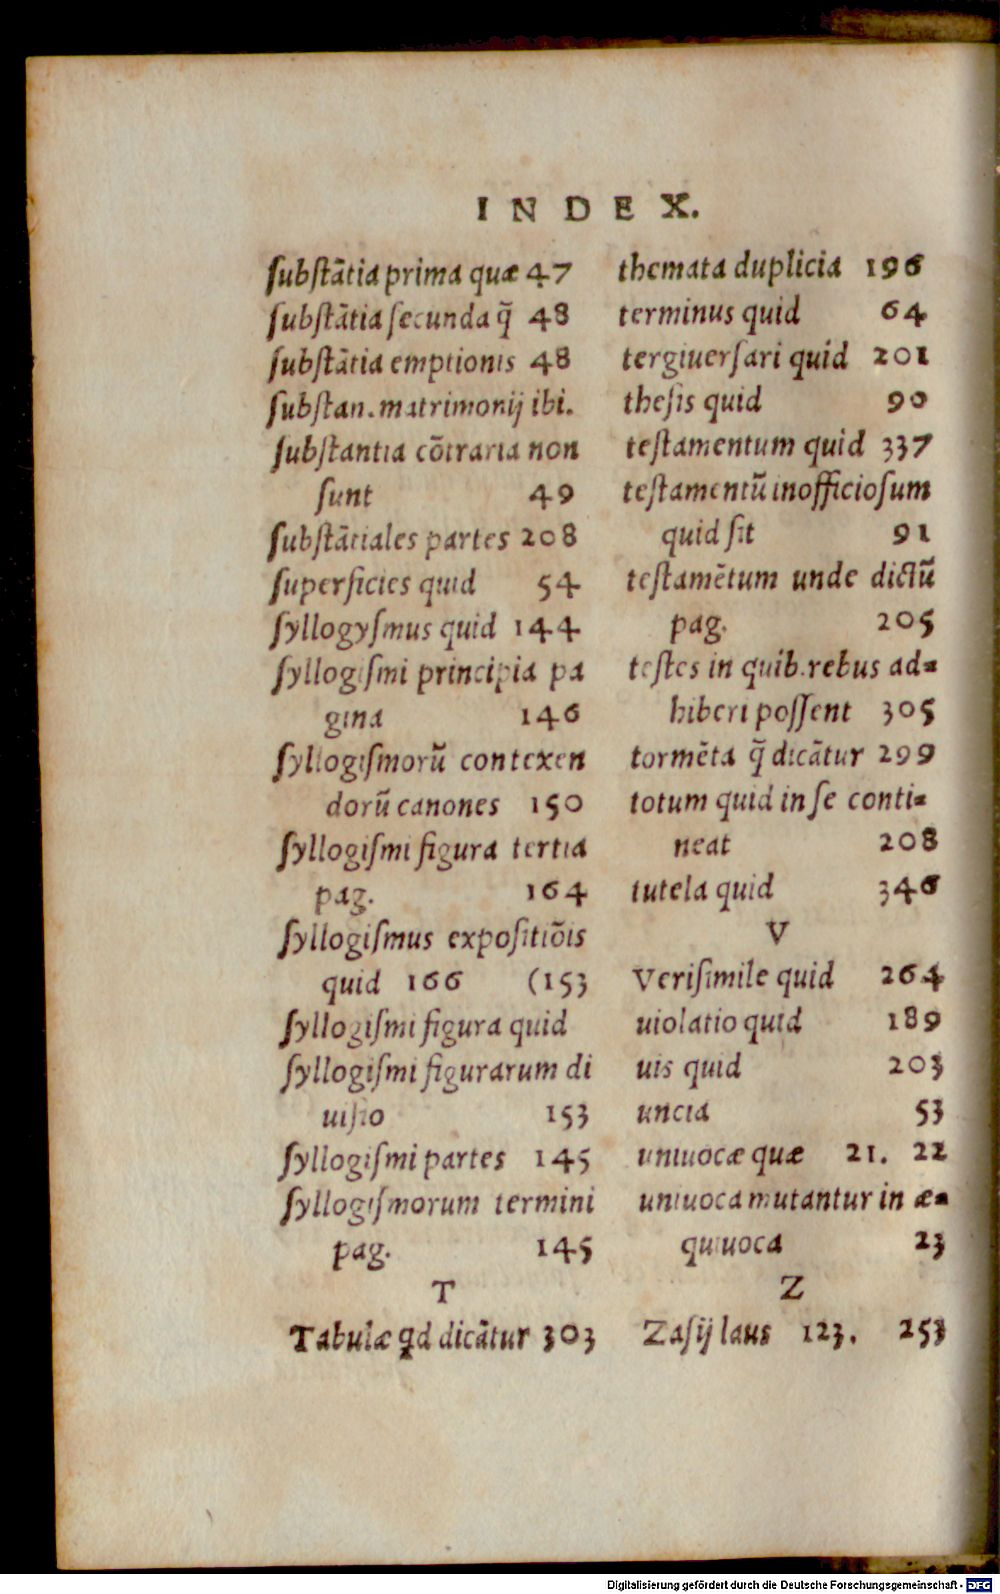 INDEX.
ſubſtātia prima quæ 47
ſubſtātia ſecunda q̄ 48
ſubſtātia emptionis 48
ſubſtan. matrimonij ibi.
ſubſtantia cōtraria non
ſunt 49
ſubſtātiales partes 208
ſuperficies quid 54
ſyllogyſmus quid 144
ſyllogiſmi principia pa
gina 146
ſyllogiſmorū contexen
dorū canones 150
ſyllogiſmi figura tertia
pag. 164
ſyllogiſmus expoſitiōis
quid 166 (153
ſyllogiſmi figura quid
ſyllogiſmi figurarum di
uiſio 153
ſyllogiſmi partes 145
ſyllogiſmorum termini
pag. 145
T
Tabulæ qd dicātur 303
themata duplicia 196
terminus quid 64
tergiuerſari quid 201
theſis quid 90
teſtamentum quid 337
teſtamentū inofficioſum
quid ſit 91
teſtamētum unde dictū
pag. 205
teſtes in quib. rebus ad=
hiberi poſſent 305
tormēta q̄ dicātur 299
totum quid in ſe conti=
neat 208
tutela quid 346
V
Veriſimile quid 264
uiolatio quid 189
uis quid 203
uncia 53
uniuocæ quæ 21. 22
uniuoca mutantur in æ=
quiuoca 23
Z
Zaſij laus 123. 253
Digitalisierung gefördert durch die Deutsche Forschungsgemeinschaft - DFG